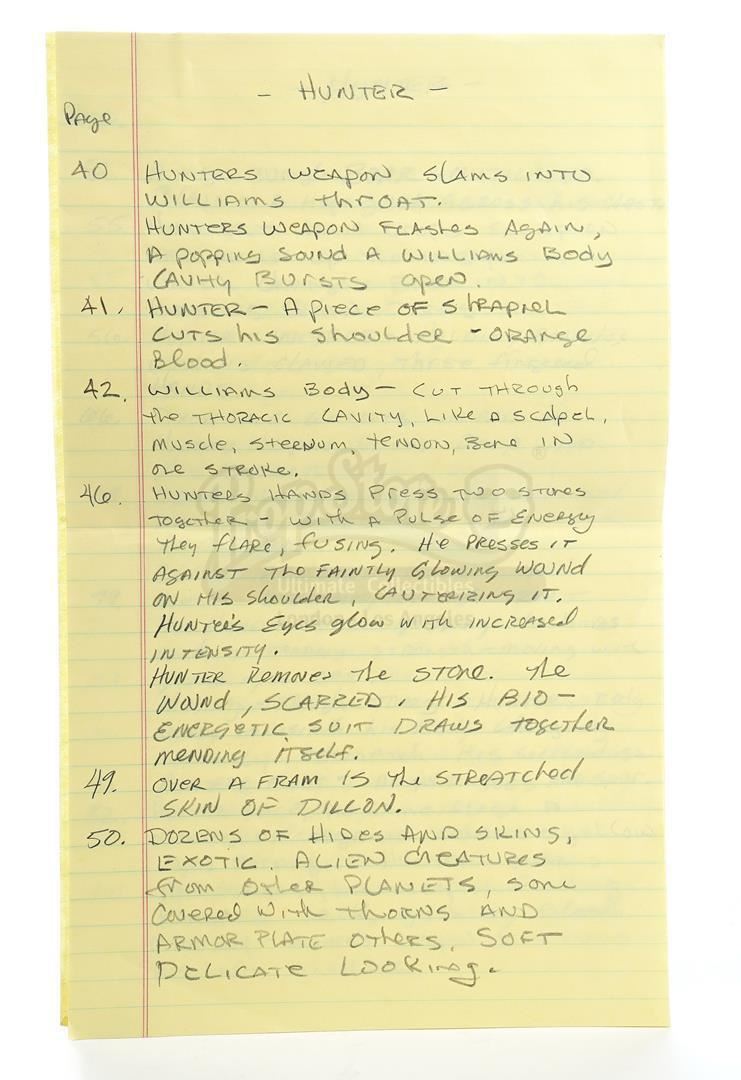 - HUNTER -
Page
40 HUNTERS WEAPON SLAMS INTO
WILLIAMS THROAT.
HUNTERS WEAPON FLASHES AGAIN,
A POPPING SOUND A WILLIAMS BODY
CAVITY BURSTS OPEN.
41. HUNTER - A PIECE OF SHRAPNEL
CUTS HIS SHOULDER - ORANGE
BLOOD.
42. WILLIAMS BODY - CUT THROUGH
THE THORACIC CAVITY, LIKE A SCALPEL,
MUSCLE, STERNUM, TENDON, BONE IN
ONE STROKE.
46. HUNTERS HANDS PRESS TWO STONES
TOGETHER - WITH A PULSE OF ENERGY
THEY FLARE, FUSING. HE PRESSES IT
AGAINST THE FAINTLY GLOWING WOUND
ON HIS SHOULDER, CAUTERIZING IT.
HUNTER'S EYES GLOW WITH INCREASED
INTENSITY.
HUNTER REMOVES THE STONE. THE
WOUND, SCARRED, HIS BIO-
ENERGETIC SUIT DRAWS TOGETHER
MENDING ITSELF.
49. OVER A FRAM IS THE STREATCHED
SKIN OF DILLON.
50. DOZENS OF HIDES AND SKINS,
EXOTIC, ALIEN CREATURES
FROM OTHER PLANETS, SOME
COVERED WITH THORNS AND
ARMOR PLATE OTHERS, SOFT
DELICATE LOOKING.
Prop Store
®
Ultimate Collectibles